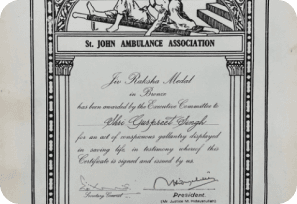 St. JOHN AMBULANCE ASSOCIATION
Jiv Raksha Medal
in Bronze
has been awarded by the Executive Committee to
Shri Gurpreet Singh
for an act of conspicuous gallantry displayed
in saving life, in testimony whereof this
Certificate is signed and issued by us.
Secretary General
President